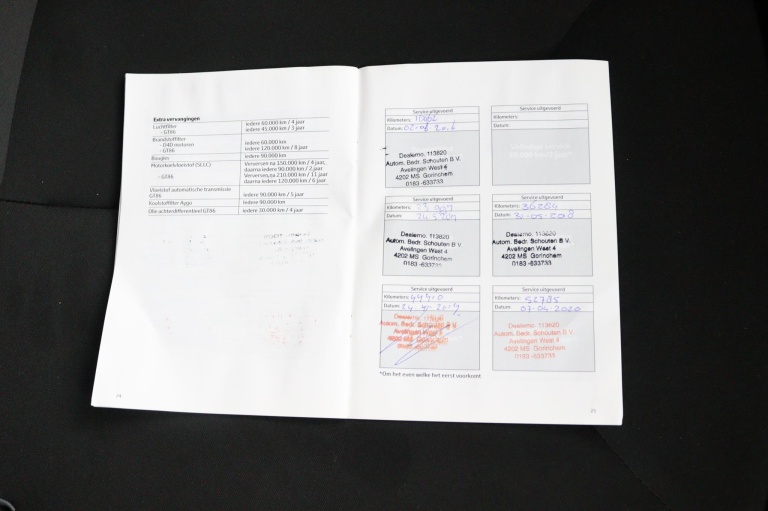 Extra vervangingen
Luchtfilter iedere 60.000 km / 4 jaar
- GT86 iedere 45.000 km / 3 jaar
Brandstoffilter
- D4D motoren iedere 60.000 km
- GT86 iedere 120.000 km / 8 jaar
Bougies iedere 90.000 km
Motorkoelvloeistof (SLLC) Verversen na 150.000 km / 4 jaar,
daarna iedere 90.000 km / 2 jaar
- GT86 Verversen na 210.000 km / 11 jaar
daarna iedere 120.000 km / 6 jaar
Vloeistof automatische transmissie
GT86 iedere 90.000 km / 5 jaar
Koolstoffilter Aygo iedere 90.000 km
Olie achterdifferentieel GT86 iedere 30.000 km / 4 jaar
24
Service uitgevoerd
Kilometers:
Datum:
Dealerno. 113820
Autom. Bedr. Schouten B.V.
Avelingen West 4
4202 MS Gorinchem
0183 -633733
Service uitgevoerd
Kilometers:
Datum:
Service uitgevoerd
Kilometers:
Datum:
Dealerno. 113820
Autom. Bedr. Schouten B.V.
Avelingen West 4
4202 MS Gorinchem
0183 -633733
Service uitgevoerd
Kilometers: 36284
Datum: 31-05-2018
Dealerno. 113820
Autom. Bedr. Schouten B.V.
Avelingen West 4
4202 MS Gorinchem
0183 -633733
Service uitgevoerd
Kilometers: 44410
Datum:
Dealerno. 113820
Autom. Bedr. Schouten B.V.
Avelingen West 4
4202 MS Gorinchem
Service uitgevoerd
Kilometers: 52785
Datum: 07-04-2020
Dealerno. 113820
Autom. Bedr. Schouten B.V.
Avelingen West 4
4202 MS Gorinchem
0183 -633733
*Om het even welke het eerst voorkomt
25